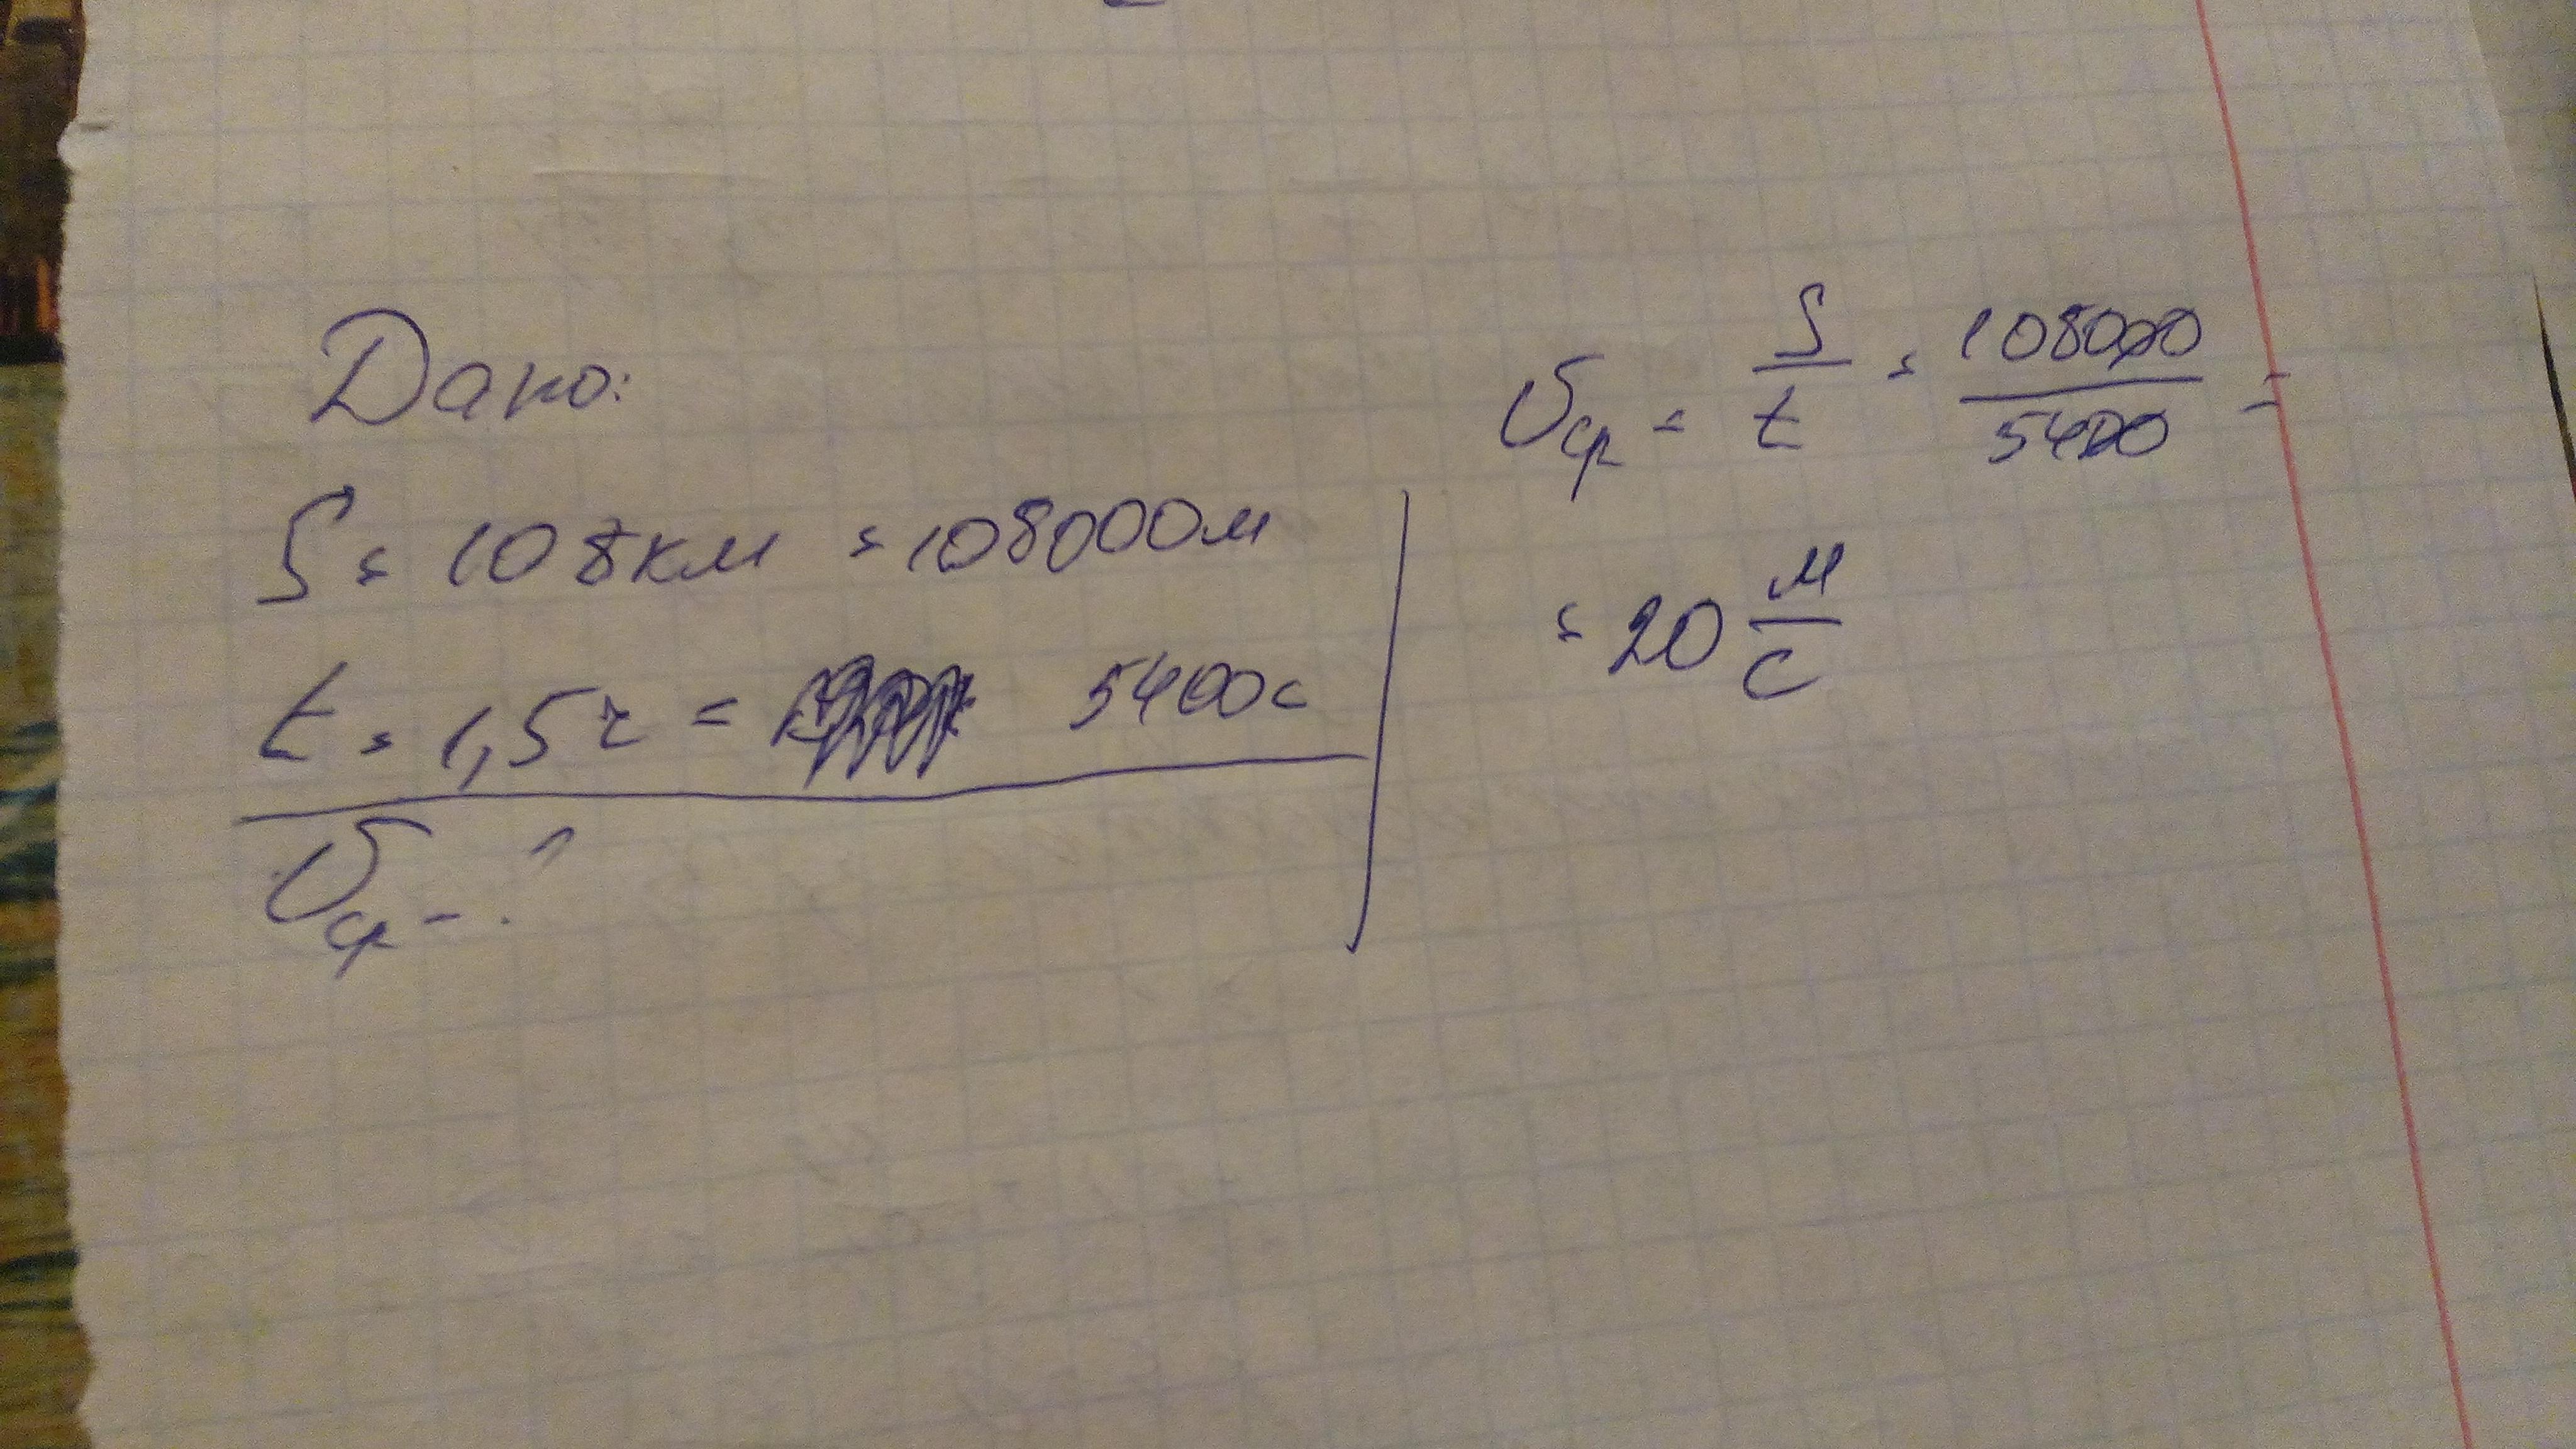 Дано:
S = 108 км = 108000 м
t = 1,5 ч = 5400 с
υср - ?
υср = S/t = 108000/5400 =
= 20 м/с